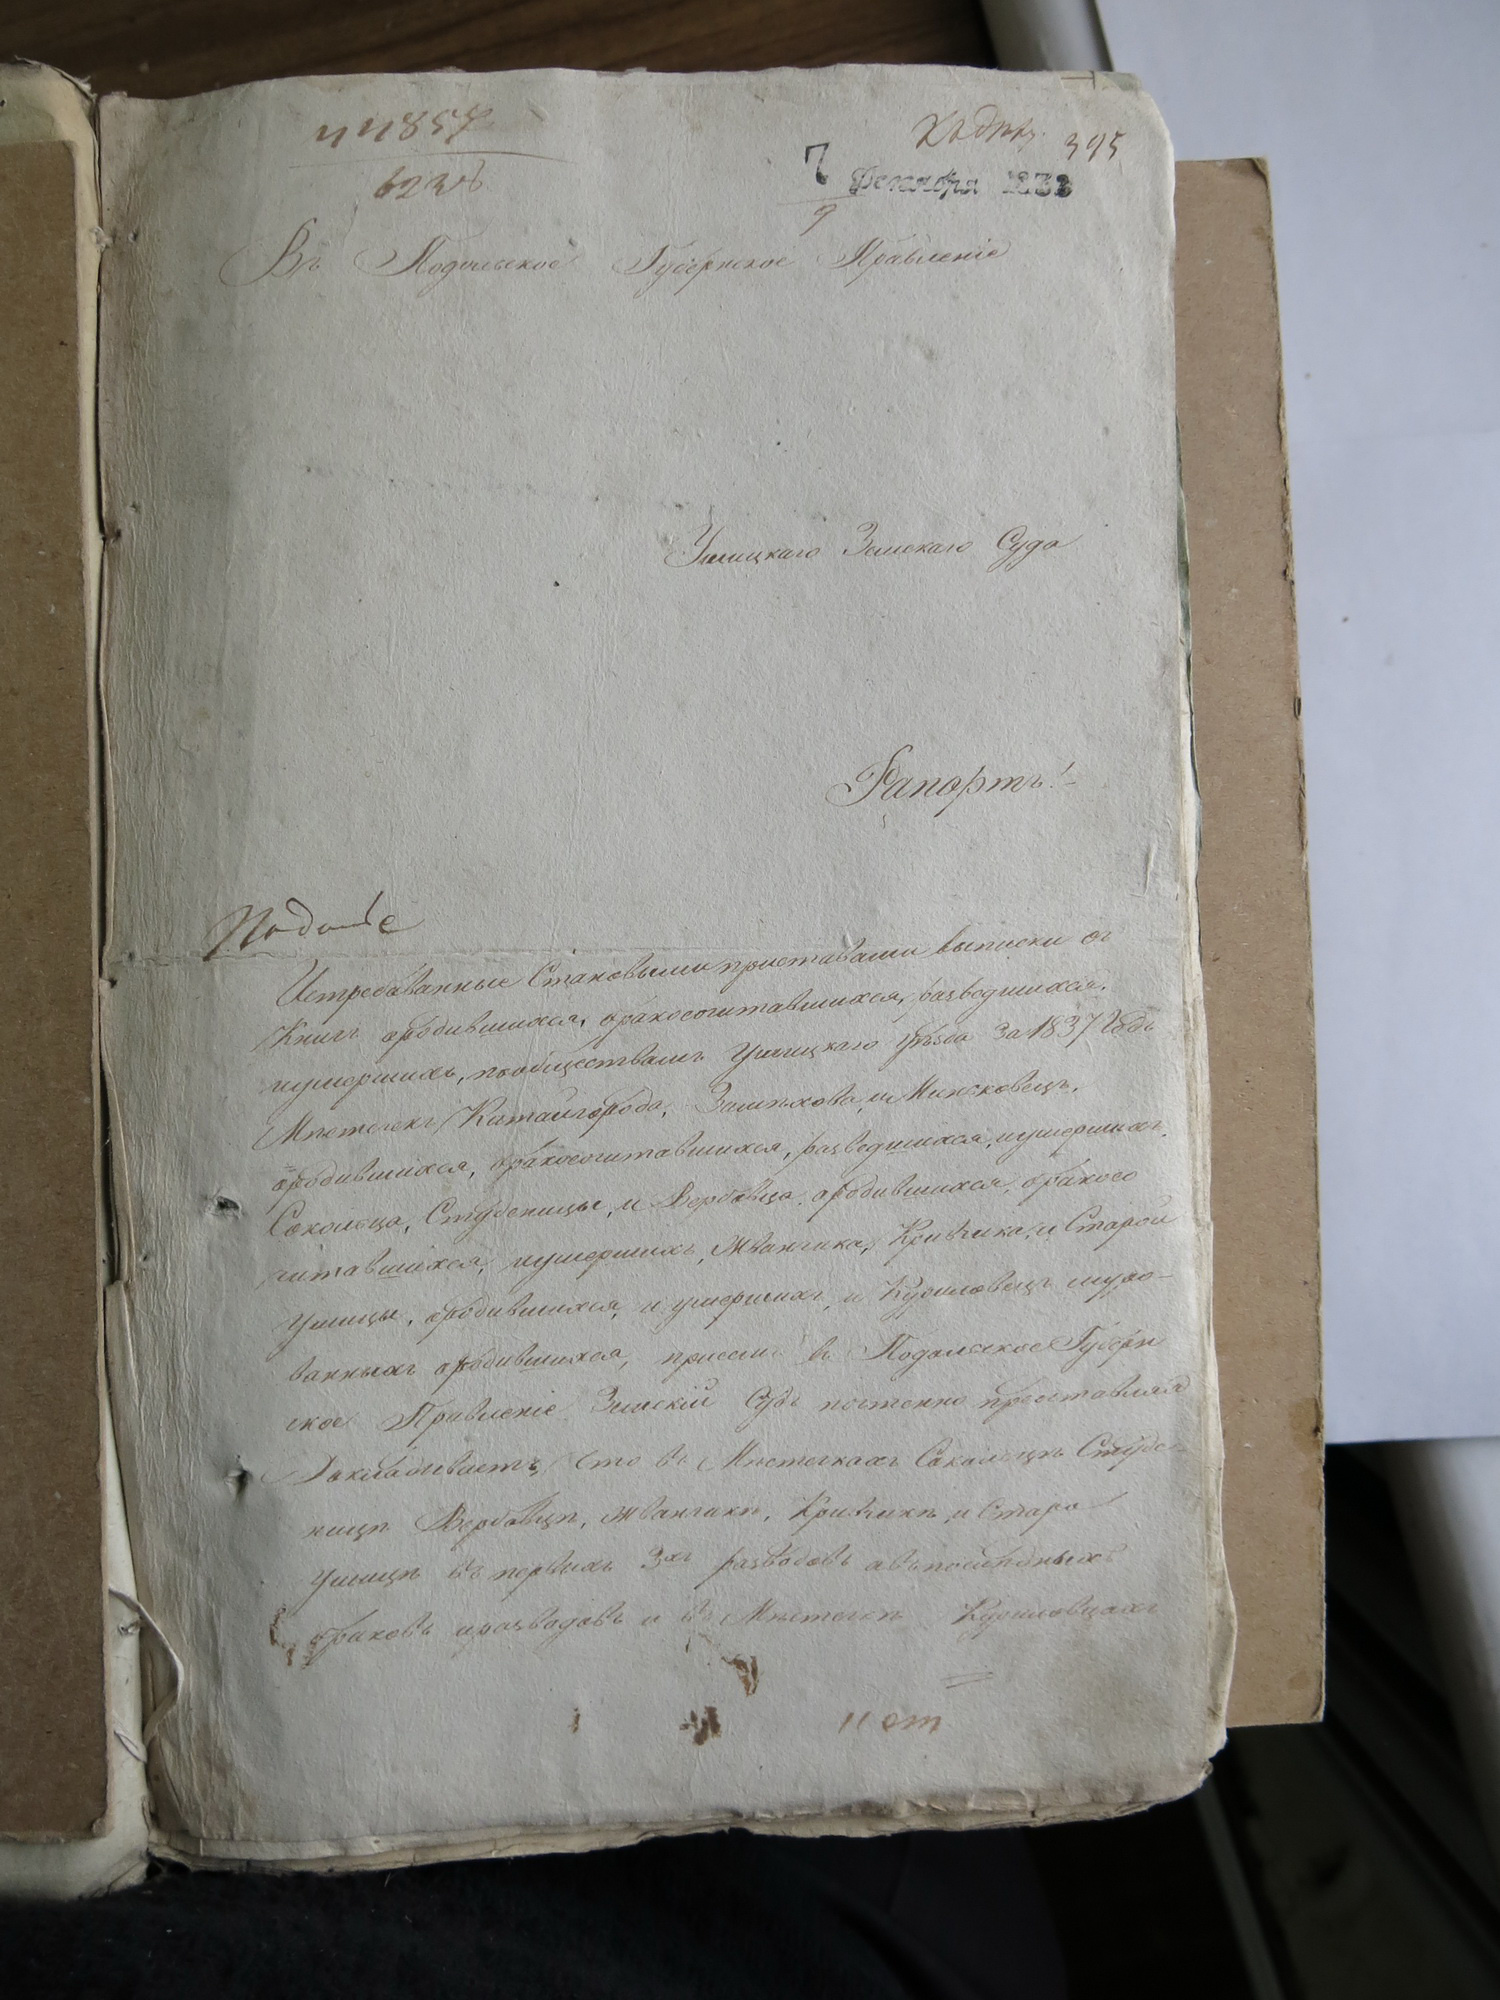 44857
395
7 Декабря 1838
9
Въ Подольское Губернское Правленіе
Ушицкаго Земскаго Суда
Рапортъ!
Истребованные Становыми приставами выписки от
Книгъ ородившихся, бракосочитавшихся, разведшихся,
иумершихъ, пообществамъ Ушицкаго уѣзда За 1837 Годъ
Мѣстечекъ Китайгорода, Замѣхова, и Миньковецъ,
ородившихся, бракосочитавшихся, разведшихся, иумершихъ,
Сокольца, Студеницы, и Вербовца, ородившихся, бракосо
читавшихся, иумершихъ, Жванчика, Кривчика, и Старой
Ушицы, ородившихся, и умершихъ, и Куриловецъ муро-
ванныхъ ородившихся, присемъ въ Подольское Губерн
ское Правленіе Земскій Судъ почтенно представляя
Докладываетъ, Что въ Мѣстечкахъ Сокольцѣ Студе
ницѣ Вербовцѣ, Жванчикѣ, Кривчикѣ, и Старо
Ушицѣ въ первыхъ 3хъ разводовъ авъпослѣдныхъ
браковъ иразводовъ и въ Мѣстечкѣ Куриловцахъ
11 ст